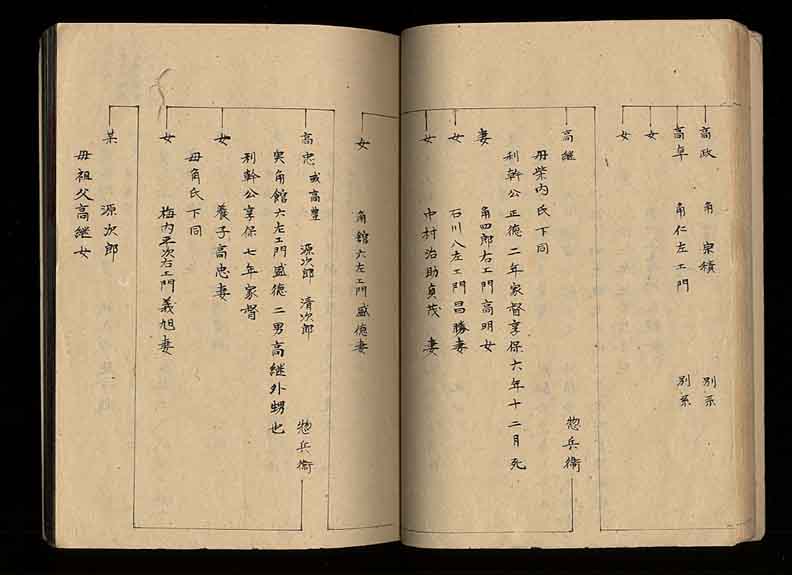 高政 角 宗積 別系
高卓 角仁左エ門 別系
女
女
高継 惣兵衛
母柴内氏下同
利幹公正徳二年家督享保六年十二月死
妻 角四郎右エ門高明女
女 石川八左エ門昌勝妻
女 中村治助貞茂 妻
女 角館六左エ門盛徳妻
高忠 或高豊 源次郎 清次郎 惣兵衛
実角館六左エ門盛徳二男高継外甥也
利幹公享保七年家督
女 養子高忠妻
母角氏下同
女 梅内平次右エ門義旭妻
某 源次郎
母祖父高継女